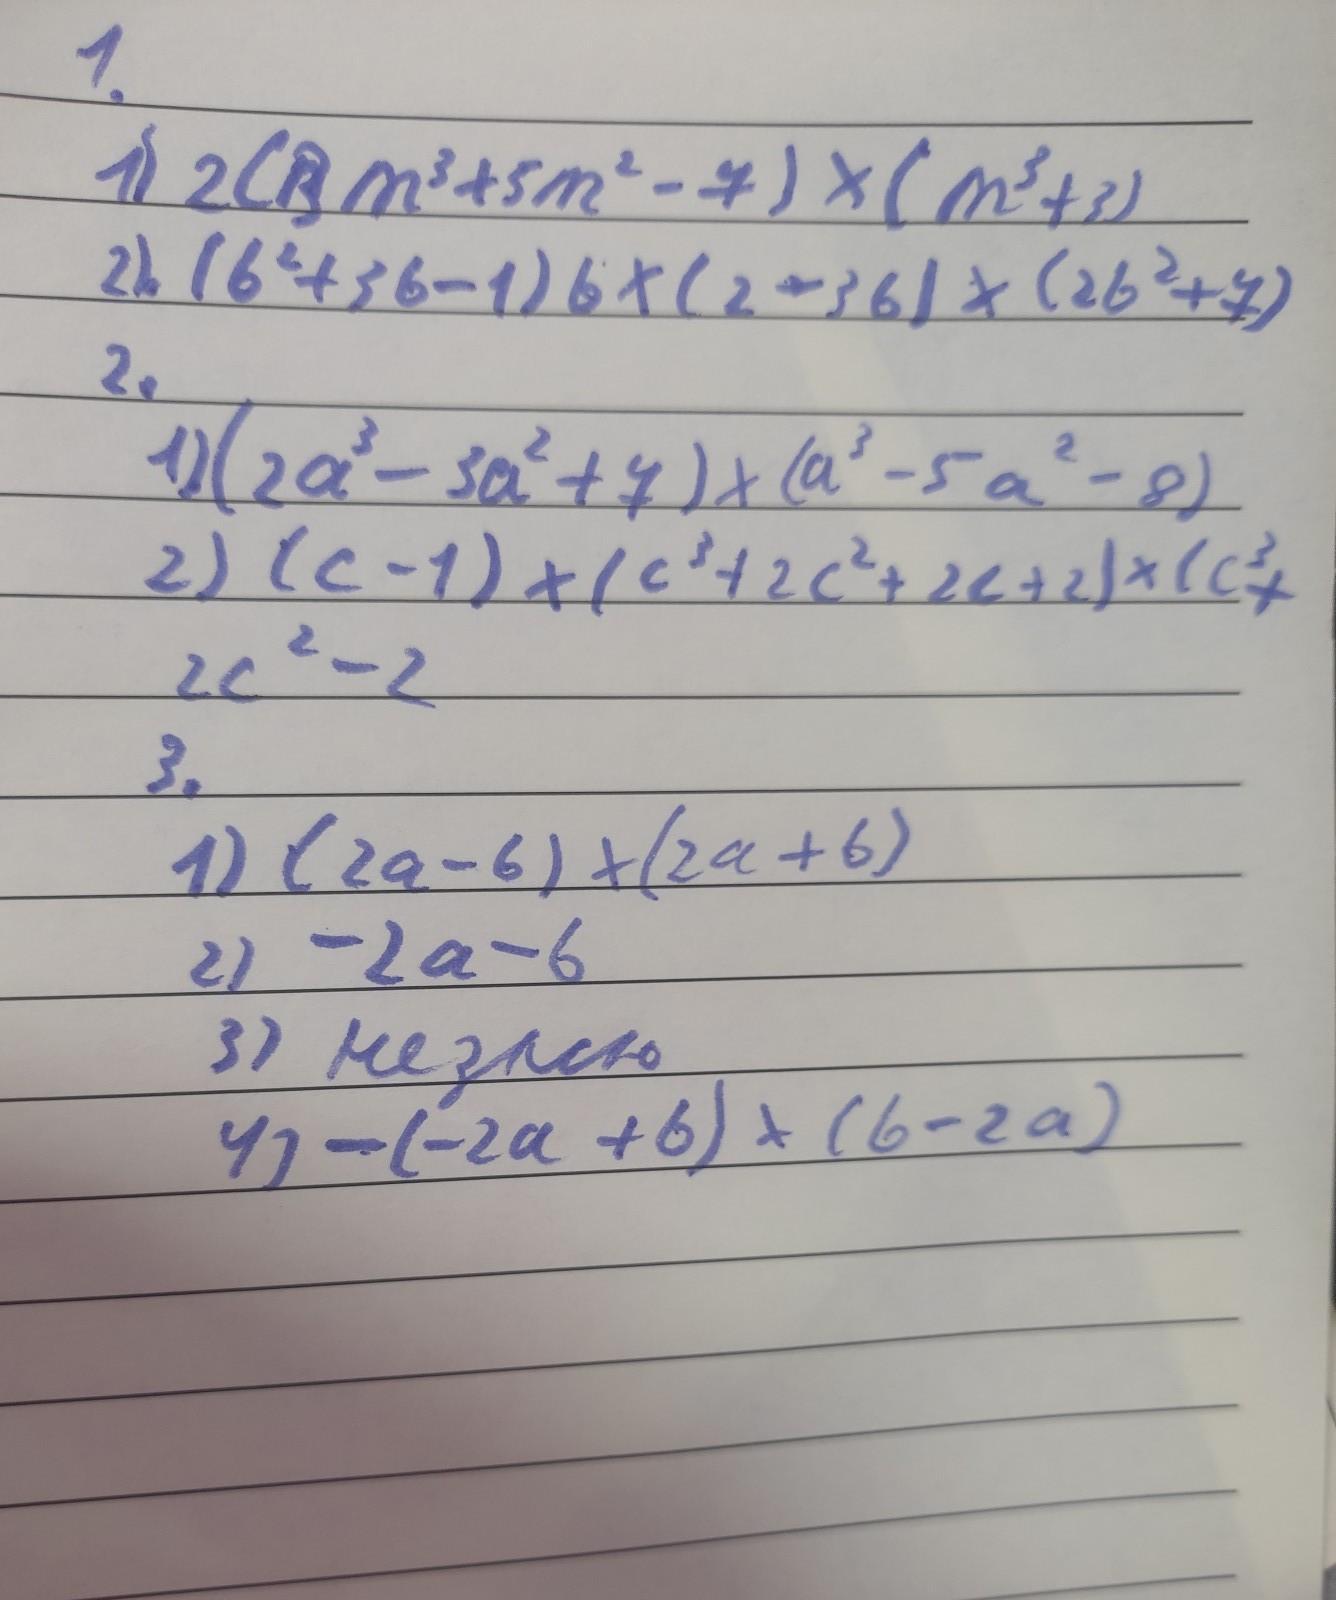 1.
1) 2(3m³+5m²-7)×(m³+3)
2). (b²+3b-1)b×(2-3b)×(2b²+7)
2.
1)(2a³-3a²+7)×(a³-5a²-8)
2) (c-1)×(c³+2c²+2c+2)×(c³+
2c²-2
3.
1) (2a-b)×(2a+b)
2) -2a-b
3) не знаю
4) -(-2a+b)×(b-2a)